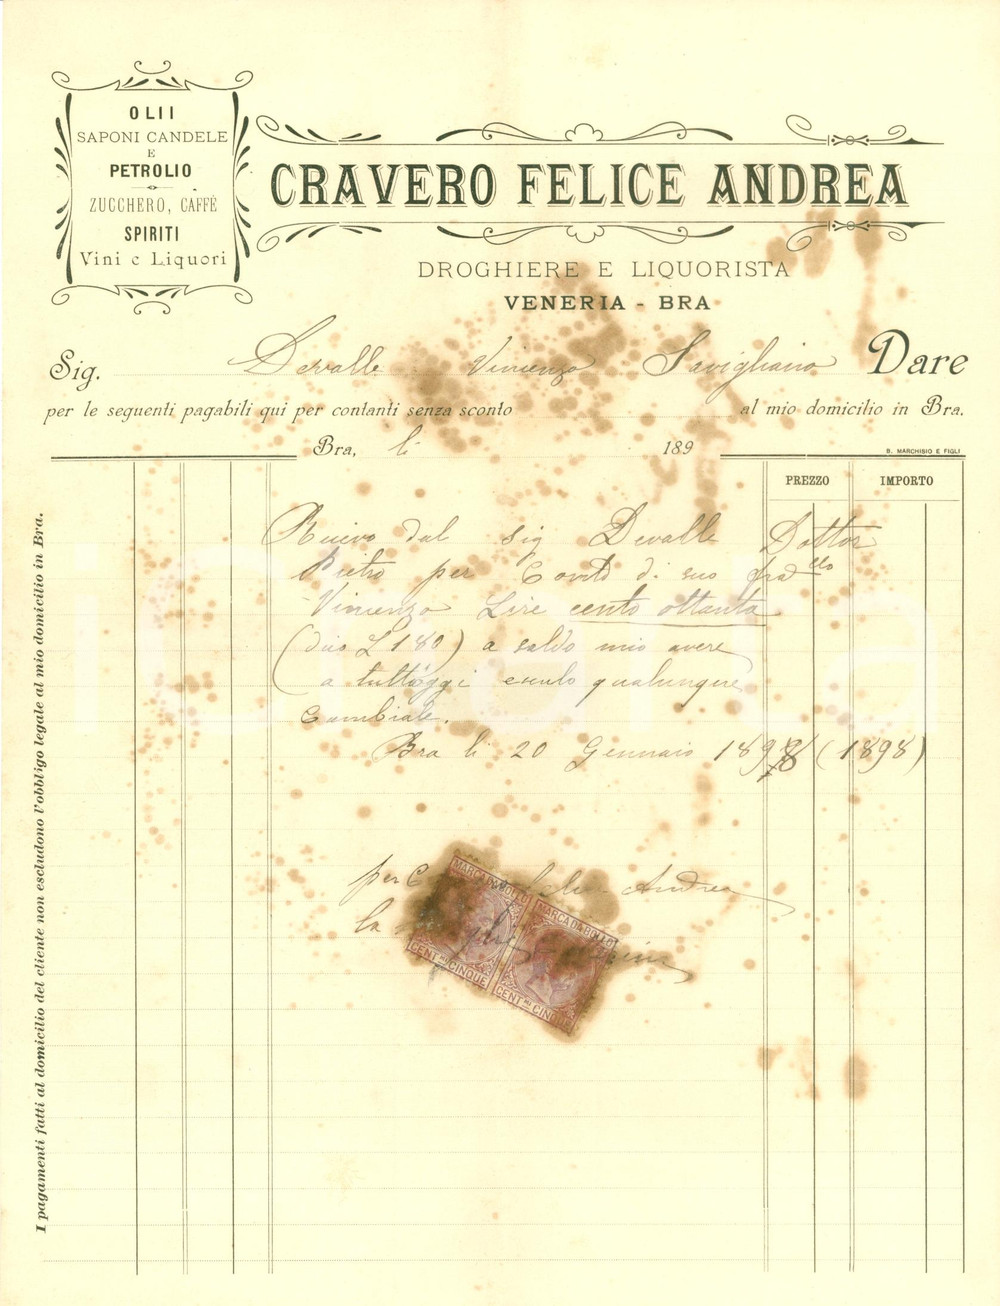 OLII
SAPONI CANDELE
E
PETROLIO
ZUCCHERO, CAFFÈ
SPIRITI
Vini e Liquori
CRAVERO FELICE ANDREA
DROGHIERE E LIQUORISTA
VENERIA - BRA
Sig. Devalle Vincenzo Savigliano Dare
per le seguenti pagabili qui per contanti senza sconto al mio domicilio in Bra.
Bra, li 189
B. MARCHISIO E FIGLI
PREZZO IMPORTO
Ricevo dal sig Devalle Dottor
Pietro per Conto di suo fradello
Vincenzo Lire cento ottanta
(dico L 180) a saldo mio avere
a tutt'oggi escluso qualunque
Cambiale.
Bra li 20 Gennaio 1898 (1898)
per C Andrea
la
MARCA DA BOLLO
CENT.MI CINQUE
MARCA DA BOLLO
CENT.MI CINQUE
I pagamenti fatti al domicilio del cliente non escludono l'obbligo legale al mio domicilio in Bra.